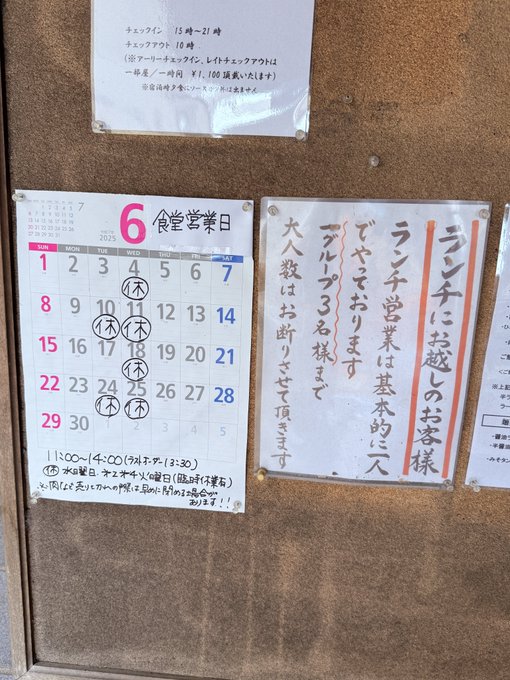 チェックイン 15時～21時
チェックアウト 10時
(※アーリーチェックイン、レイトチェックアウトは
一部屋／一時間 ¥1,100頂戴いたします)
7
6
2025
食堂営業日
SUN MON TUE WED THU FRI SAT
1 2 3 4 5 6 7
休
8 9 10 11 12 13 14
休 休
15 16 17 18 19 20 21
休
22 23 24 25 26 27 28
休 休
29 30
11:00～14:00(ラストオーダー13:30)
休 水曜日 第2第4火曜日(臨時休業有)
※肉など売り切れの際は早めに閉める場合が
あります!!
ランチにお越しのお客様
ランチ営業は基本的に一人
でやっております
一グループ3名様まで
大人数はお断りさせて頂きます